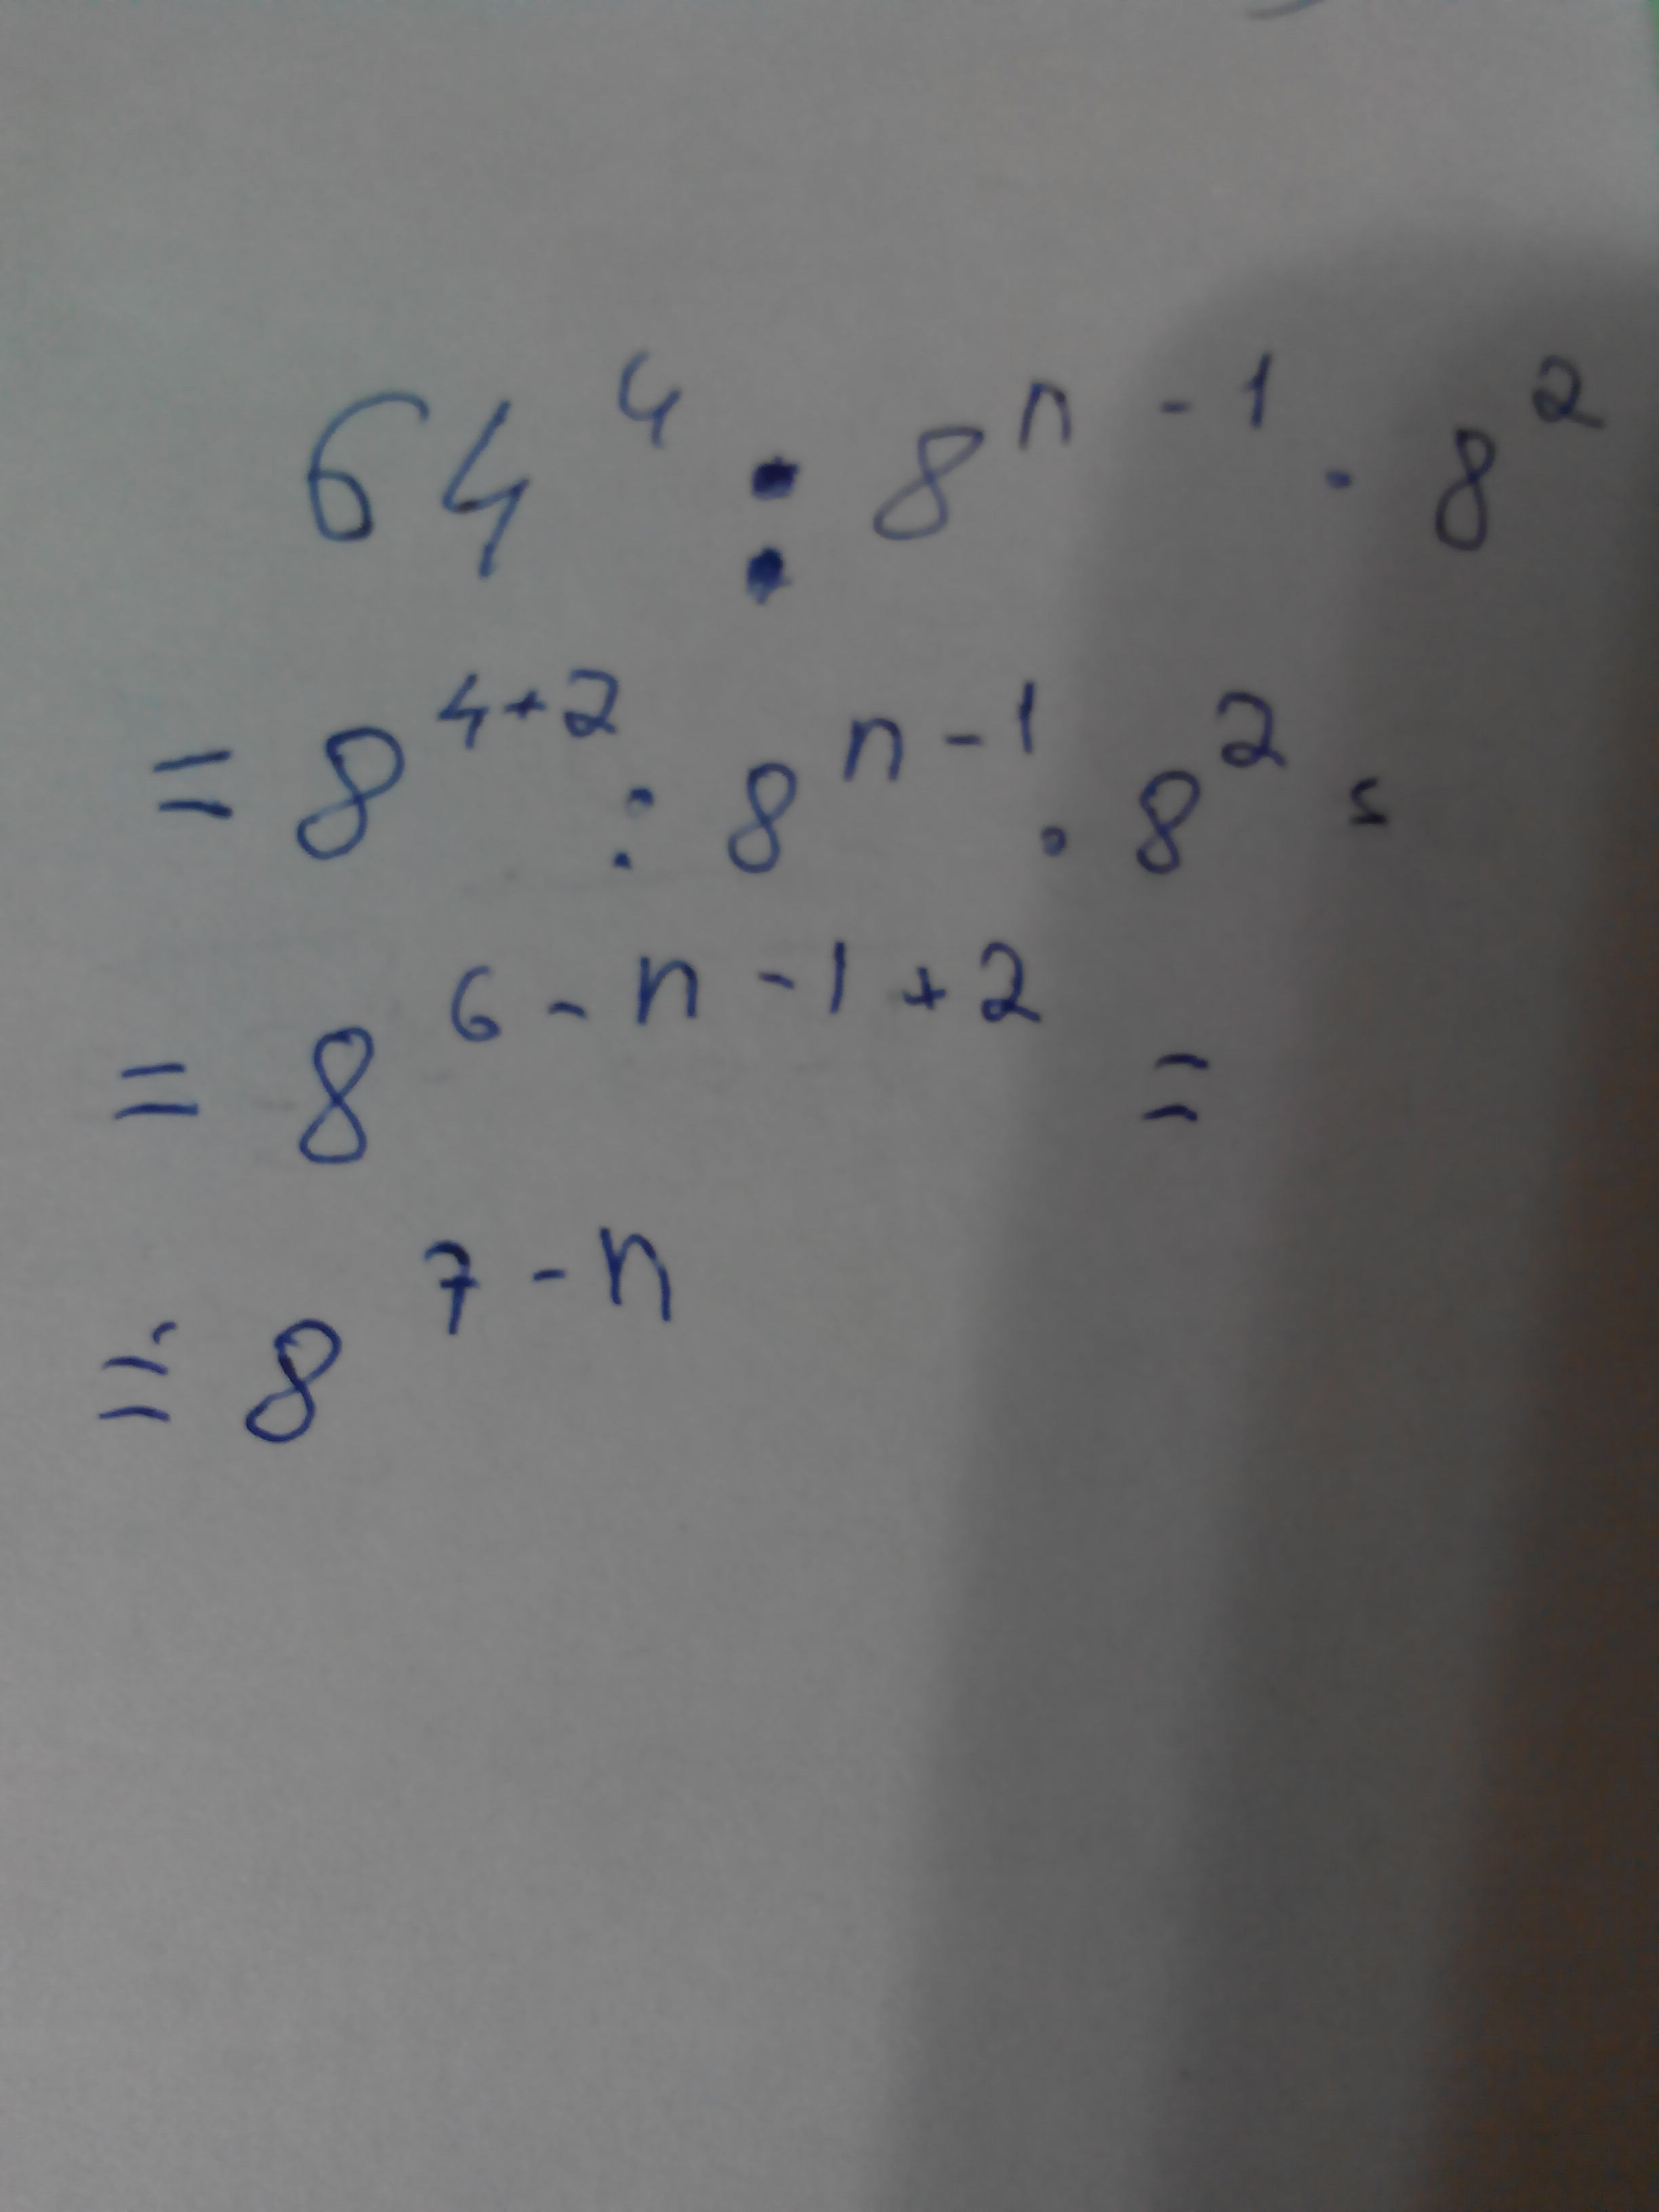 64⁴ : 8ⁿ⁻¹ · 8²
= 8⁴⁺² : 8ⁿ⁻¹ · 8² =
= 8⁶⁻ⁿ⁻¹⁺² =
= 8⁷⁻ⁿ